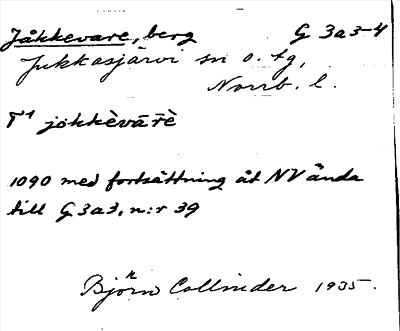 Jåkkevare, berg G 3a3-4
Jukkasjärvi sn o. tg,
Norrb. l.
T¹ jòkkèvār̄è
1090 med fortsättning åt NV ända
till G 3a3, n:r 39
Björn Collinder 1935.